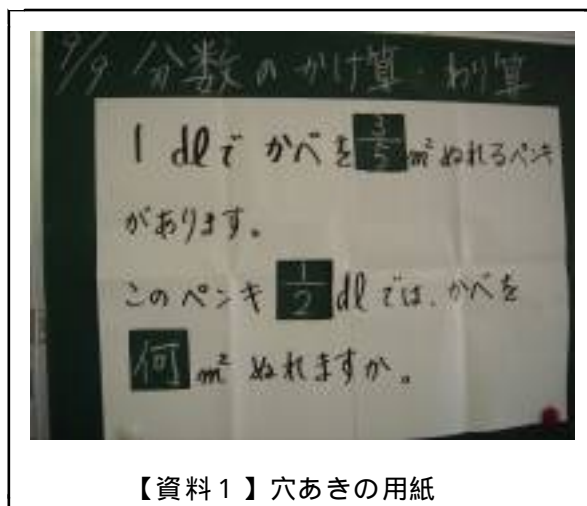 9/9 分数のかけ算・わり算
1dlでかべを3/5m²ぬれるペンキ
があります。
このペンキ1/2dlでは、かべを
何m²ぬれますか。
【資料1】穴あきの用紙